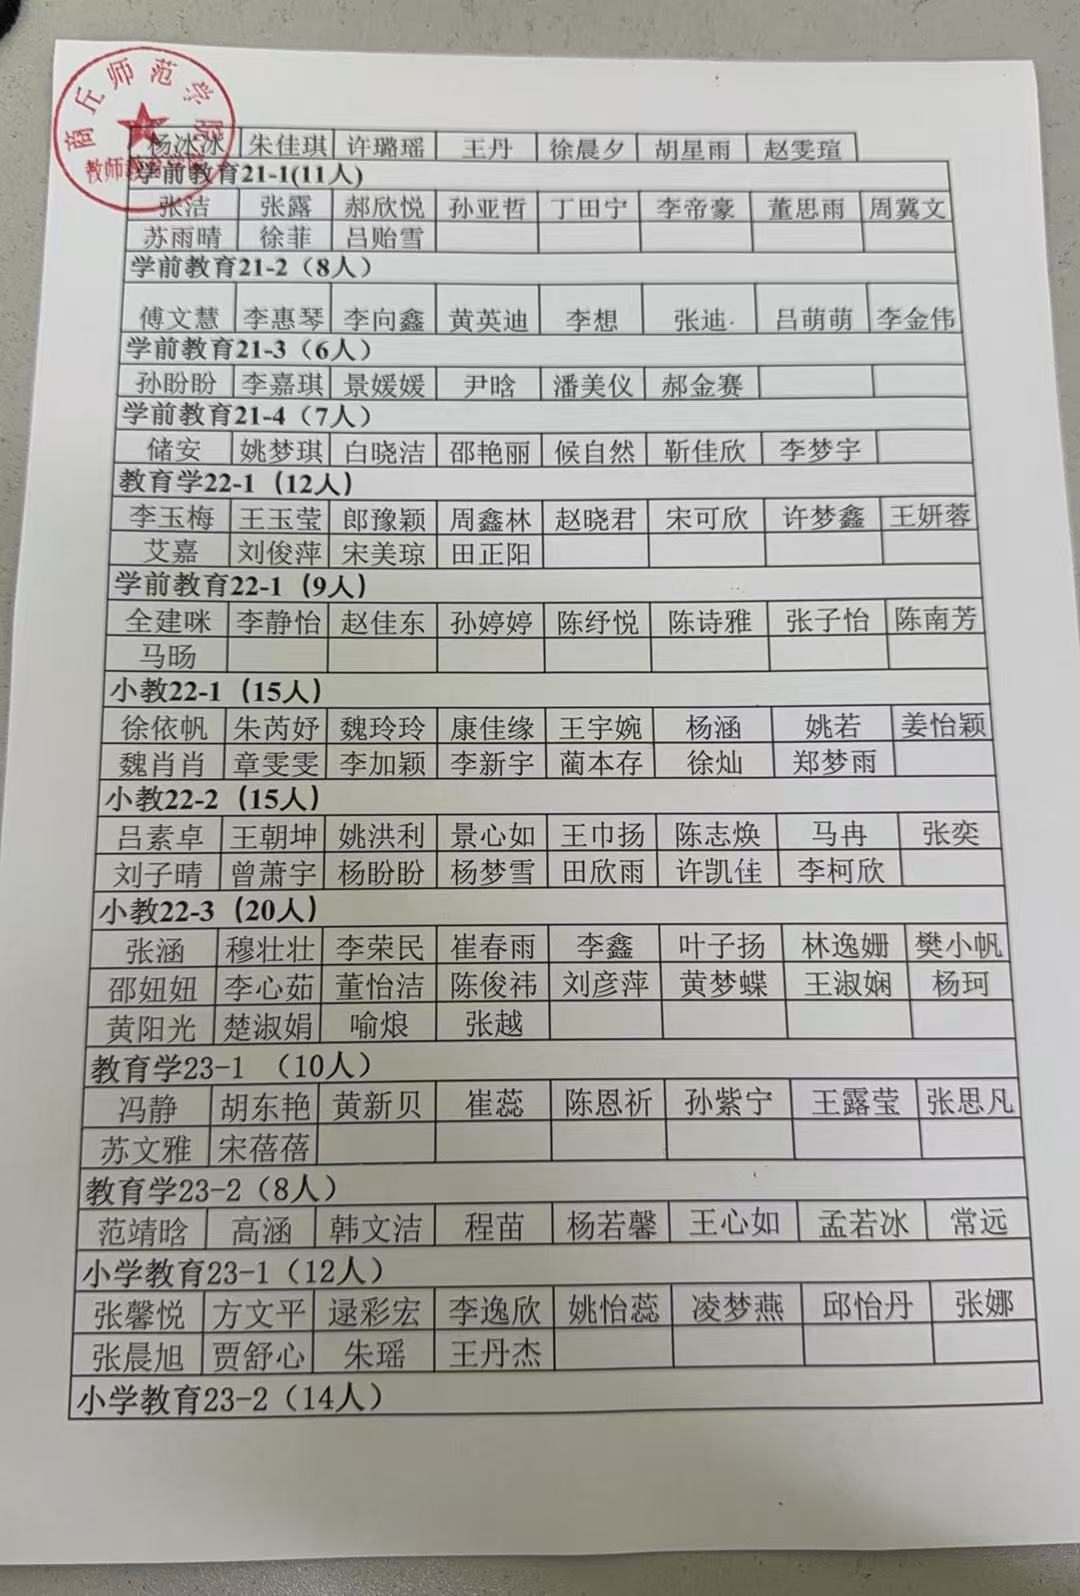 商丘师范学院
杨冰冰 朱佳琪 许璐瑶 王丹 徐晨夕 胡星雨 赵雯瑄
学前教育21-1(11人)
张洁 张露 郝欣悦 孙亚哲 丁田宁 李帝豪 董思雨 周冀文
苏雨晴 徐菲 吕贻雪
学前教育21-2（8人）
傅文慧 李惠琴 李向鑫 黄英迪 李想 张迪 吕萌萌 李金伟
学前教育21-3（6人）
孙盼盼 李嘉琪 景媛媛 尹晗 潘美仪 郝金赛
学前教育21-4（7人）
储安 姚梦琪 白晓洁 邵艳丽 候自然 靳佳欣 李梦宇
教育学22-1（12人）
李玉梅 王玉莹 郎豫颖 周鑫林 赵晓君 宋可欣 许梦鑫 王妍蓉
艾嘉 刘俊萍 宋美琼 田正阳
学前教育22-1（9人）
全建咪 李静怡 赵佳东 孙婷婷 陈纾悦 陈诗雅 张子怡 陈南芳
马旸
小教22-1（15人）
徐依帆 朱芮妤 魏玲玲 康佳缘 王宇婉 杨涵 姚若 姜怡颖
魏肖肖 章雯雯 李加颖 李新宇 蔺本存 徐灿 郑梦雨
小教22-2（15人）
吕素卓 王朝坤 姚洪利 景心如 王巾扬 陈志焕 马冉 张奕
刘子晴 曾萧宇 杨盼盼 杨梦雪 田欣雨 许凯佳 李柯欣
小教22-3（20人）
张涵 穆壮壮 李荣民 崔春雨 李鑫 叶子扬 林逸姗 樊小帆
邵妞妞 李心茹 董怡洁 陈俊祎 刘彦萍 黄梦蝶 王淑娴 杨珂
黄阳光 楚淑娟 喻烺 张越
教育学23-1 （10人）
冯静 胡东艳 黄新贝 崔蕊 陈恩祈 孙紫宁 王露莹 张思凡
苏文雅 宋蓓蓓
教育学23-2（8人）
范靖晗 高涵 韩文洁 程苗 杨若馨 王心如 孟若冰 常远
小学教育23-1（12人）
张馨悦 方文平 逯彩宏 李逸欣 姚怡蕊 凌梦燕 邱怡丹 张娜
张晨旭 贾舒心 朱瑶 王丹杰
小学教育23-2（14人）